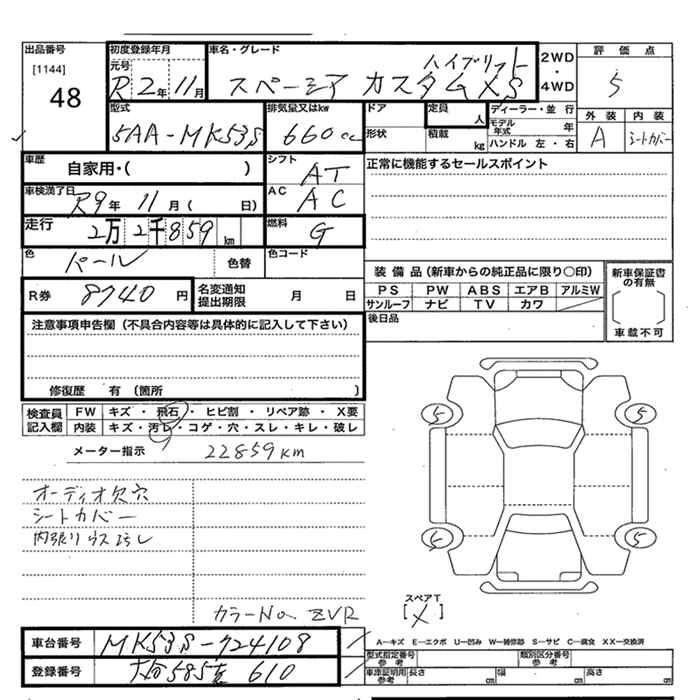 出品番号
[1144]
48
初度登録年月
元号
R2年11月
車名・グレード
ハイブリット
スペーシア カスタムXS
2WD
・
4WD
評価点
5
外装 内装
A シートカバー
型式
5AA-MK53S
排気量又はkw
660cc
ドア
形状
定員
人
積載
kg
ディーラー・並行
モデル年式 年
ハンドル 左・右
車歴
自家用・( )
シフト
AT
正常に機能するセールスポイント
車検満了日
R9年 11月( 日)
AC
AC
走行
2万2千859km
燃料
G
色
パール
色替
色コード
装備品(新車からの純正品に限り○印)
PS PW ABS エアB アルミW
サンルーフ ナビ TV カワ
新車保証書の有無
車載不可
R券 8740円
名変通知
提出期限
月 日
後日品
注意事項申告欄(不具合内容等は具体的に記入して下さい)
修復歴 有(箇所 )
検査員
記入欄
FW キズ・飛石・ヒビ割・リペア跡・X要
内装 キズ・汚レ・コゲ・穴・スレ・キレ・破レ
メーター指示 22859KM
オーディオ欠穴
シートカバー
内張りウス汚レ
5 5
5 5
カラーNo ZVR
スペアT
[X]
A-キズ E-エクボ U-凹み W-補修跡 S-サビ C-腐食 XX-交換済
車台番号 MK53S-724108
型式指定番号
参考
類別区分番号
参考
登録番号 585 610
車庫証明用
参考
長さ cm 幅 cm 高さ cm